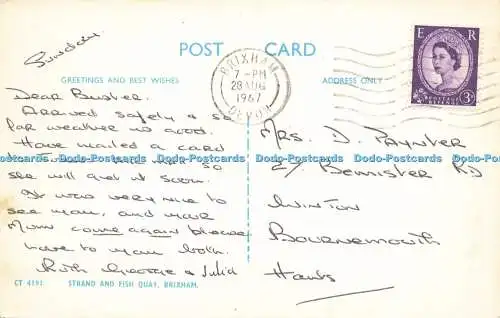 Sunday
POST CARD
GREETINGS AND BEST WISHES
ADDRESS ONLY
BRIXHAM
7 - PM
28 AUG
1967
DEVON
E R
POSTAGE
REVENUE
3D
Dear Buster.
Arrived safely & so
far weather no good.
Have mailed a card
to so
she will get it soon.
It was very nice to
see you, and your
Mum come again please
love to you both.
Ruth George & Julia
Mrs. D. Paynter
Bemister Rd
Winton
Bournemouth
Hants
CT 4191 STRAND AND FISH QUAY, BRIXHAM.
Dodo-Postcards Dodo-Postcards Dodo-Postcards Dodo-Postcards Dodo-Postcards